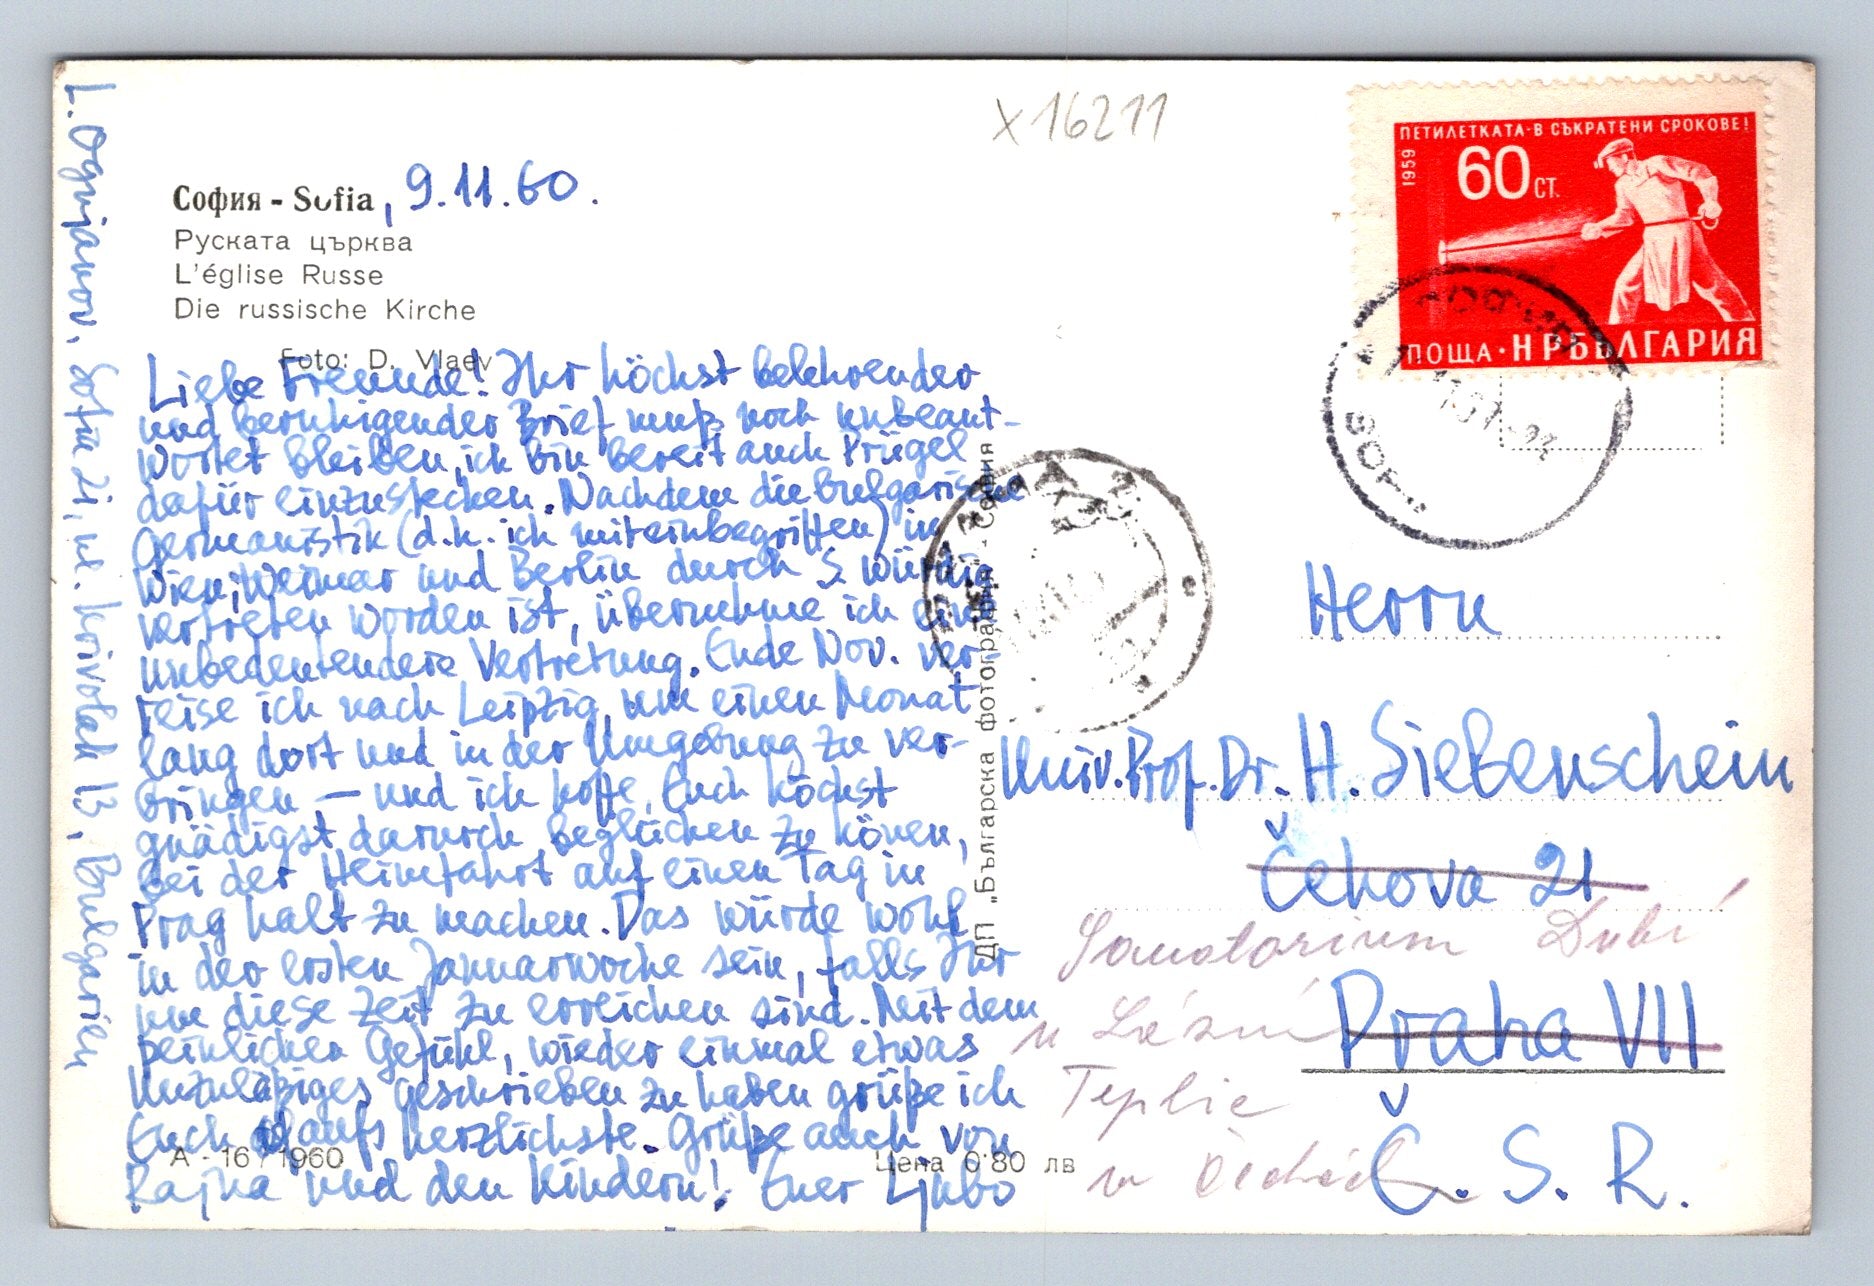 X 16211
ПЕТИЛЕТКАТА-В СЪКРАТЕНИ СРОКОВЕ!
1959
60 СТ.
ПОЩА·НРБЪЛГАРИЯ
София - Sofia, 9.11.60.
Руската църква
L'église Russe
Die russische Kirche
Foto: D. Vlaev
Liebe Freunde! Ihr höchst belehrender
und beruhigender Brief muß noch unbeant-
wortet bleiben, ich bin bereit auch Prügel
dafür einzustecken. Nachdem die bulgarische
Germanistik (d.h. ich miteinbegriffen) in
Wien, Weimar und Berlin durch S. würdig
vertreten worden ist, übernehme ich eine
unbedeutendere Vertretung. Ende Nov. ver-
reise ich nach Leipzig, um einen Monat
lang dort und in der Umgebung zu ver-
bringen — und ich hoffe, Euch höchst
gnädigst dadurch beglücken zu könen,
bei der Heimfahrt auf einen Tag in
Prag halt zu machen. Das würde wohl
in der ersten Januarwoche sein, falls Ihr
um diese Zeit zu erreichen sind. Mit dem
peinlichen Gefühl, wieder einmal etwas
Unzuläßiges geschrieben zu haben grüße ich
Euch aufs herzlichste. Grüße auch von
Rajna und den Kindern! Euer Ljubo
A - 16 / 1960
Цена 0·80 лв
L. Ognjanov, Sofia 21, ul. Krivolak 13, Bulgarien
ДП „Българска фотография" - София
Herrn
Univ. Prof. Dr. H. Siebenschein
Čehova 21
Praha VII
Č. S. R.
Sanatorium Dubí
u Lázní
Teplic
v Čechách